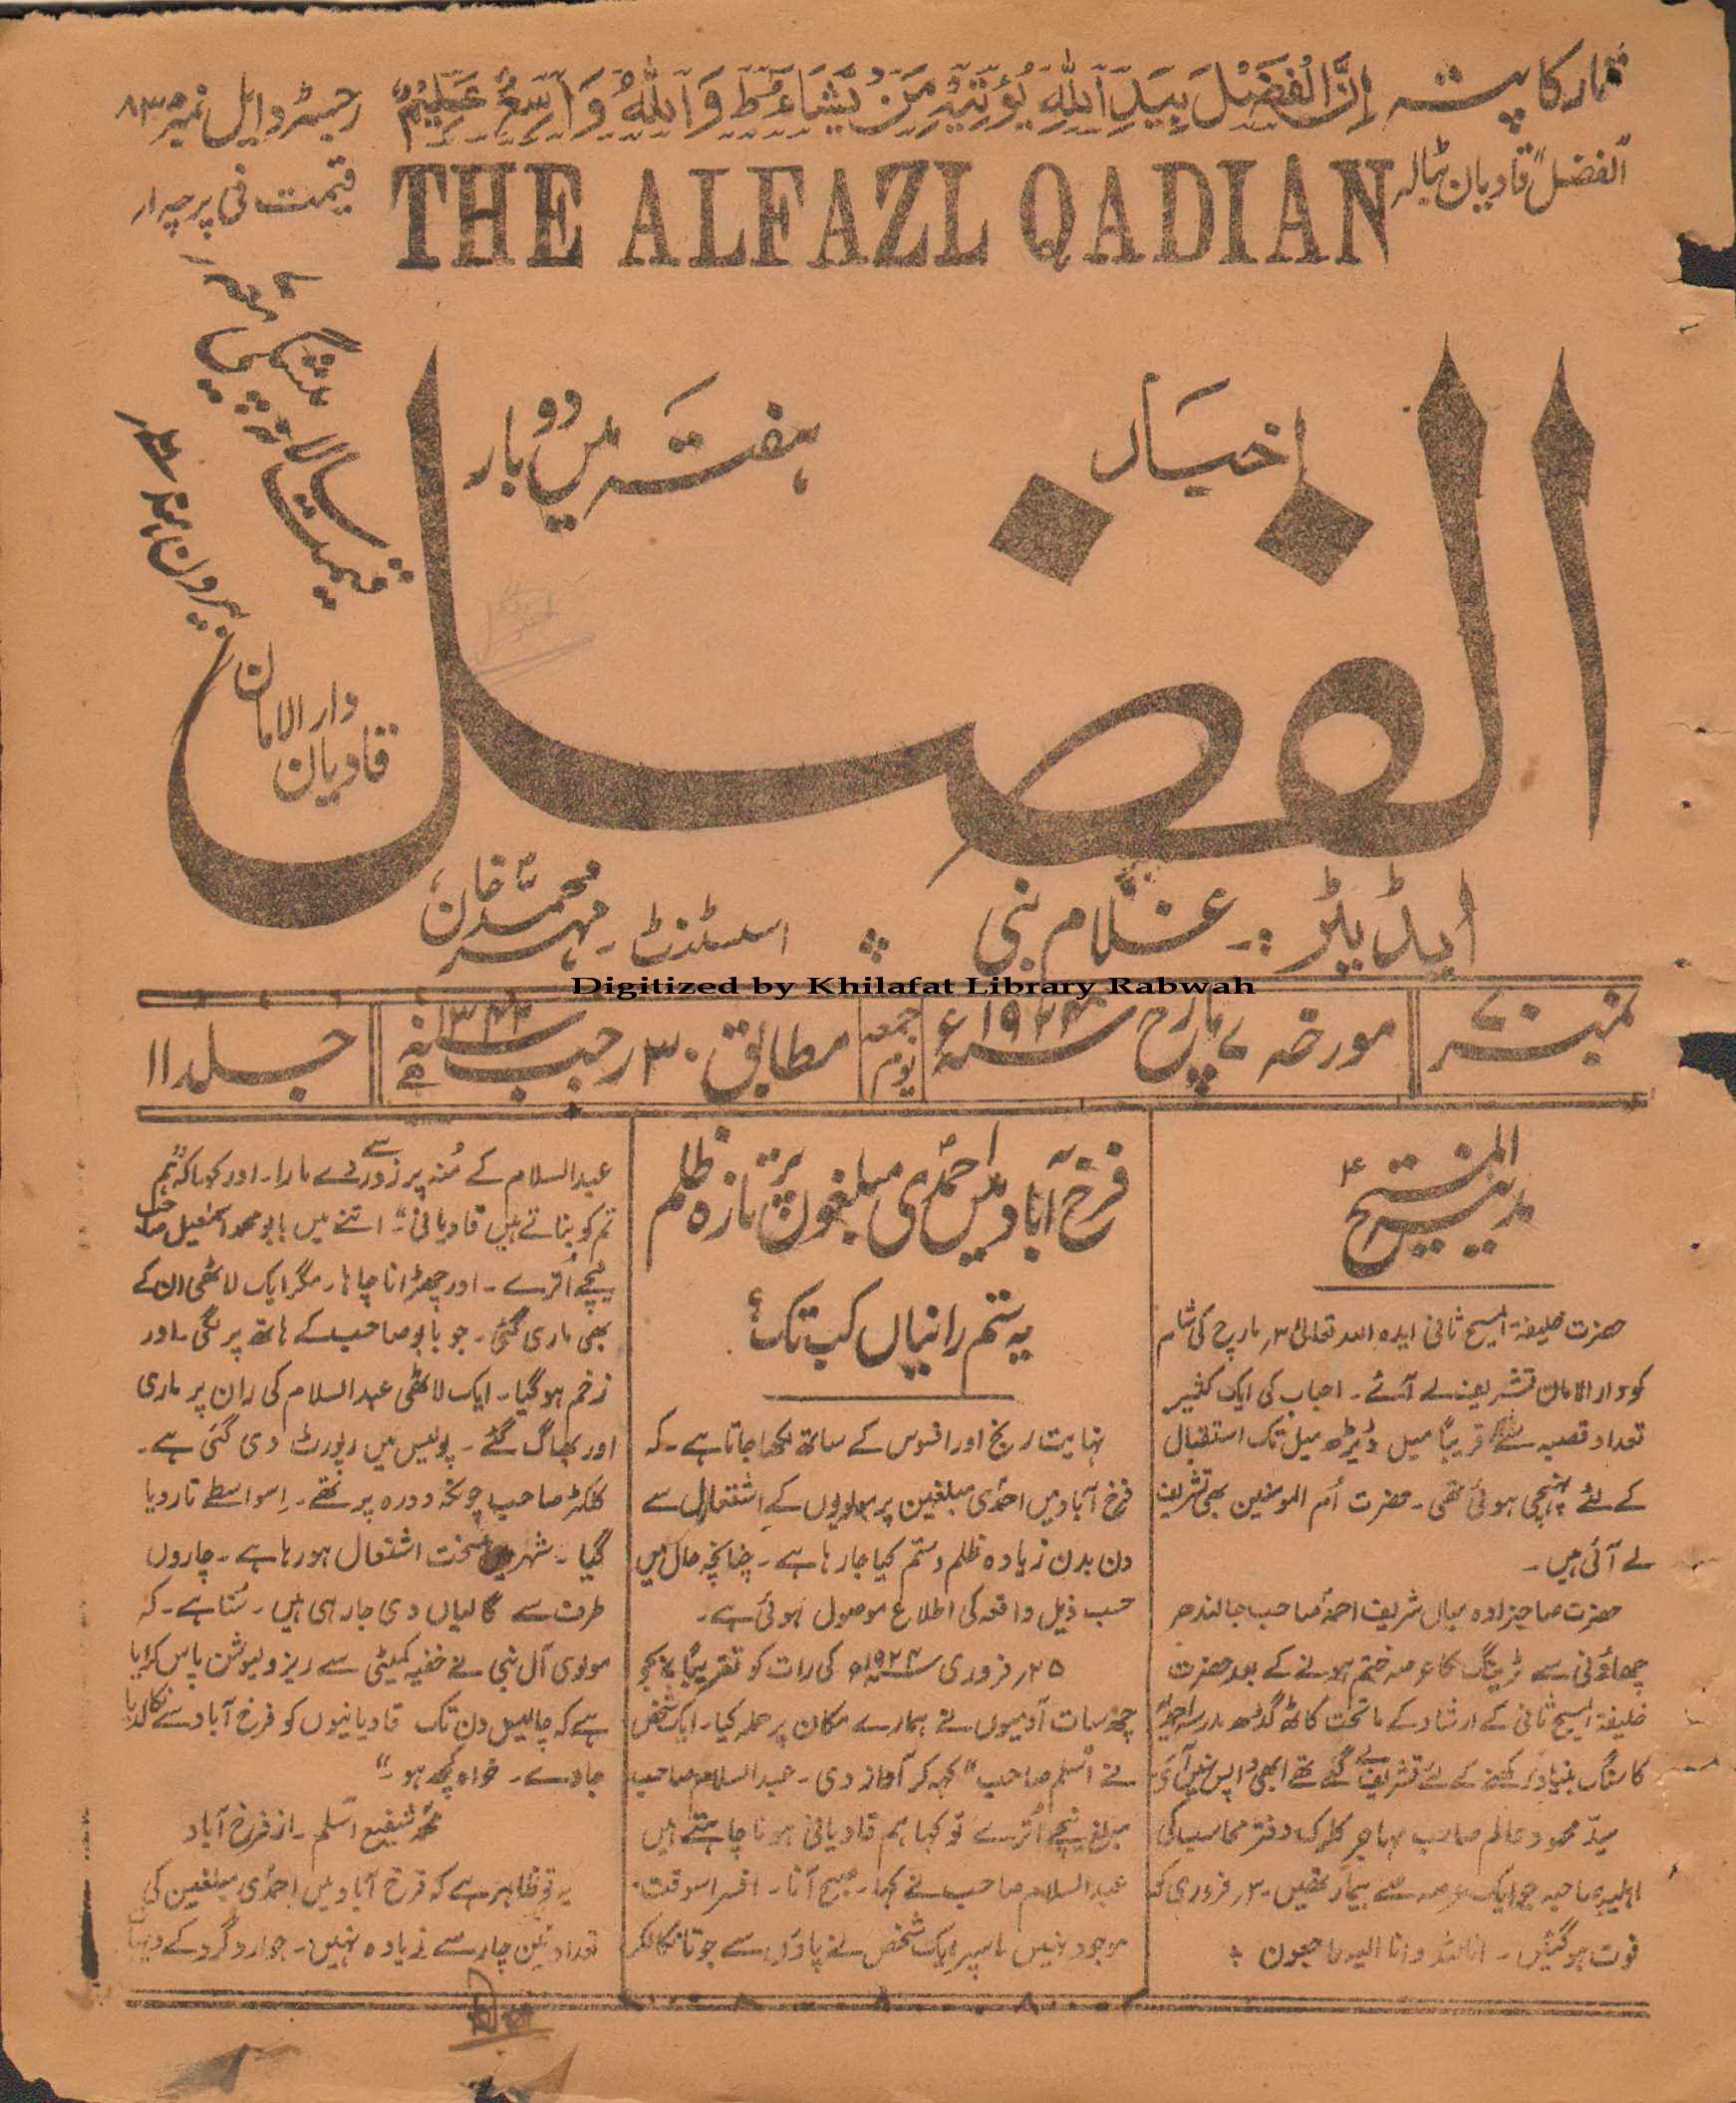 تار کا پتہ
اِنَّ الْفَضْلَ بِیَدِ اللّٰهِ یُؤْتِیْهِ مَنْ یَّشَآءُ ط وَاللّٰهُ وَاسِعٌ عَلِیْمٌ
رجسٹرڈ ایل نمبر ۸۳۵
"الفضل" قادیان بٹالہ
THE ALFAZL QADIAN
قیمت فی پرچہ ۱ر
اخبار
ہفتہ میں دو بار
الفضل
قیمت سالانہ پیشگی
بیرون ہند
دار الامان
قادیان
ایڈیٹر :- غلام نبی
اسسٹنٹ - مہر محمد خان
Digitized by Khilafat Library Rabwah
نمبر ۷۰
مورخہ ۷ مارچ ۱۹۲۴ء
یوم جمعہ
مطابق ۳۰ رجب ۱۳۴۲ھ
جلد ۱۱
المنسیح
مدینہ
حضرت خلیفۃ المسیح ثانی ایدہ اللہ تعالیٰ ۳ر مارچ کی شام
کو دار الامان تشریف لے آئے۔ احباب کی ایک کثیر
تعداد قصبہ سے قریباً میل ڈیڑھ میل تک استقبال
کے لئے پہنچی ہوئی تھی۔ حضرت اُم المومنین بھی تشریف
لے آئی ہیں۔
حضرت صاحبزادہ میاں شریف احمد صاحب جالندھر
چھاؤنی سے ٹریننگ کا عرصہ ختم ہونے کے بعد حضرت
خلیفۃ المسیح ثانی کے ارشاد کے ماتحت کاٹھ گڈھ مدرسہ احمدیہ
کا سنگ بنیاد رکھنے کے لئے تشریف لے گئے تھے ابھی واپس نہیں آئے
سید محمود عالم صاحب مہاجر کلرک دفتر محاسب کی
اہلیہ صاحبہ جو ایک عرصہ سے بیمار تھیں۔ ۳ر فروری کو
فوت ہو گئیں۔ انا للہ وانا الیہ راجعون ؛
فرخ آباد میں احمدی مبلغوں پر تازہ ظلم
یہ ستم رانیاں کب تک؟
نہایت رنج اور افسوس کے ساتھ لکھا جاتا ہے۔ کہ
فرخ آباد میں احمدی مبلغین پر مولویوں کے اشتعال سے
دن بدن زیادہ ظلم و ستم کیا جا رہا ہے۔ چنانچہ حال میں
حسب ذیل واقعہ کی اطلاع موصول ہوئی ہے۔
۲۵ر فروری ۱۹۲۴ء کی رات کو تقریباً بجے
چھ سات آدمیوں نے ہمارے مکان پر حملہ کیا۔ ایک شخص
نے "اسلم صاحب" کہہ کر آواز دی۔ عبدالسلام صاحب
مبلغ نیچے اُترے تو کہا ہم قادیانی ہونا چاہتے ہیں
عبدالسلام صاحب نے کہا۔ صبح آنا۔ افسر اسوقت
موجود نہیں۔ اسپر ایک شخص نے پاؤں سے جوتا نکالکر
عبدالسلام کے مُنہ پر زور سے دے مارا۔ اور کہا کہ "ہم
تم کو بناتے ہیں قادیانی" اتنے میں بابو محمد اسمٰعیل صاحب
نیچے اُترے۔ اور چھڑانا چاہا۔ مگر ایک لاٹھی ان کے
بھی ماری گئی۔ جو بابو صاحب کے ہاتھ پر لگی۔ اور
زخم ہو گیا۔ ایک لاٹھی عبدالسلام کی ران پر ماری
اور بھاگ گئے۔ پولیس میں رپورٹ دی گئی ہے۔
کلکٹر صاحب چونکہ دورہ پر تھے۔ اِسواسطے تار دیا
گیا۔ شہر میں سخت اشتعال ہو رہا ہے۔ چاروں
طرف سے گالیاں دی جا رہی ہیں۔ سُنا ہے۔ کہ
مولوی آل نبی نے خفیہ کمیٹی سے ریزولیوشن پاس کرایا
ہے کہ چالیس دن تک قادیانیوں کو فرخ آباد سے نکالدیا
جاوے۔ خواہ کچھ ہو۔"
محمد شفیع اسلم۔ از فرخ آباد
یہ تو ظاہر ہے کہ فرخ آباد میں احمدی مبلغین کی
تعداد تین چار سے زیادہ نہیں۔ جو ارد گرد کے دیہات